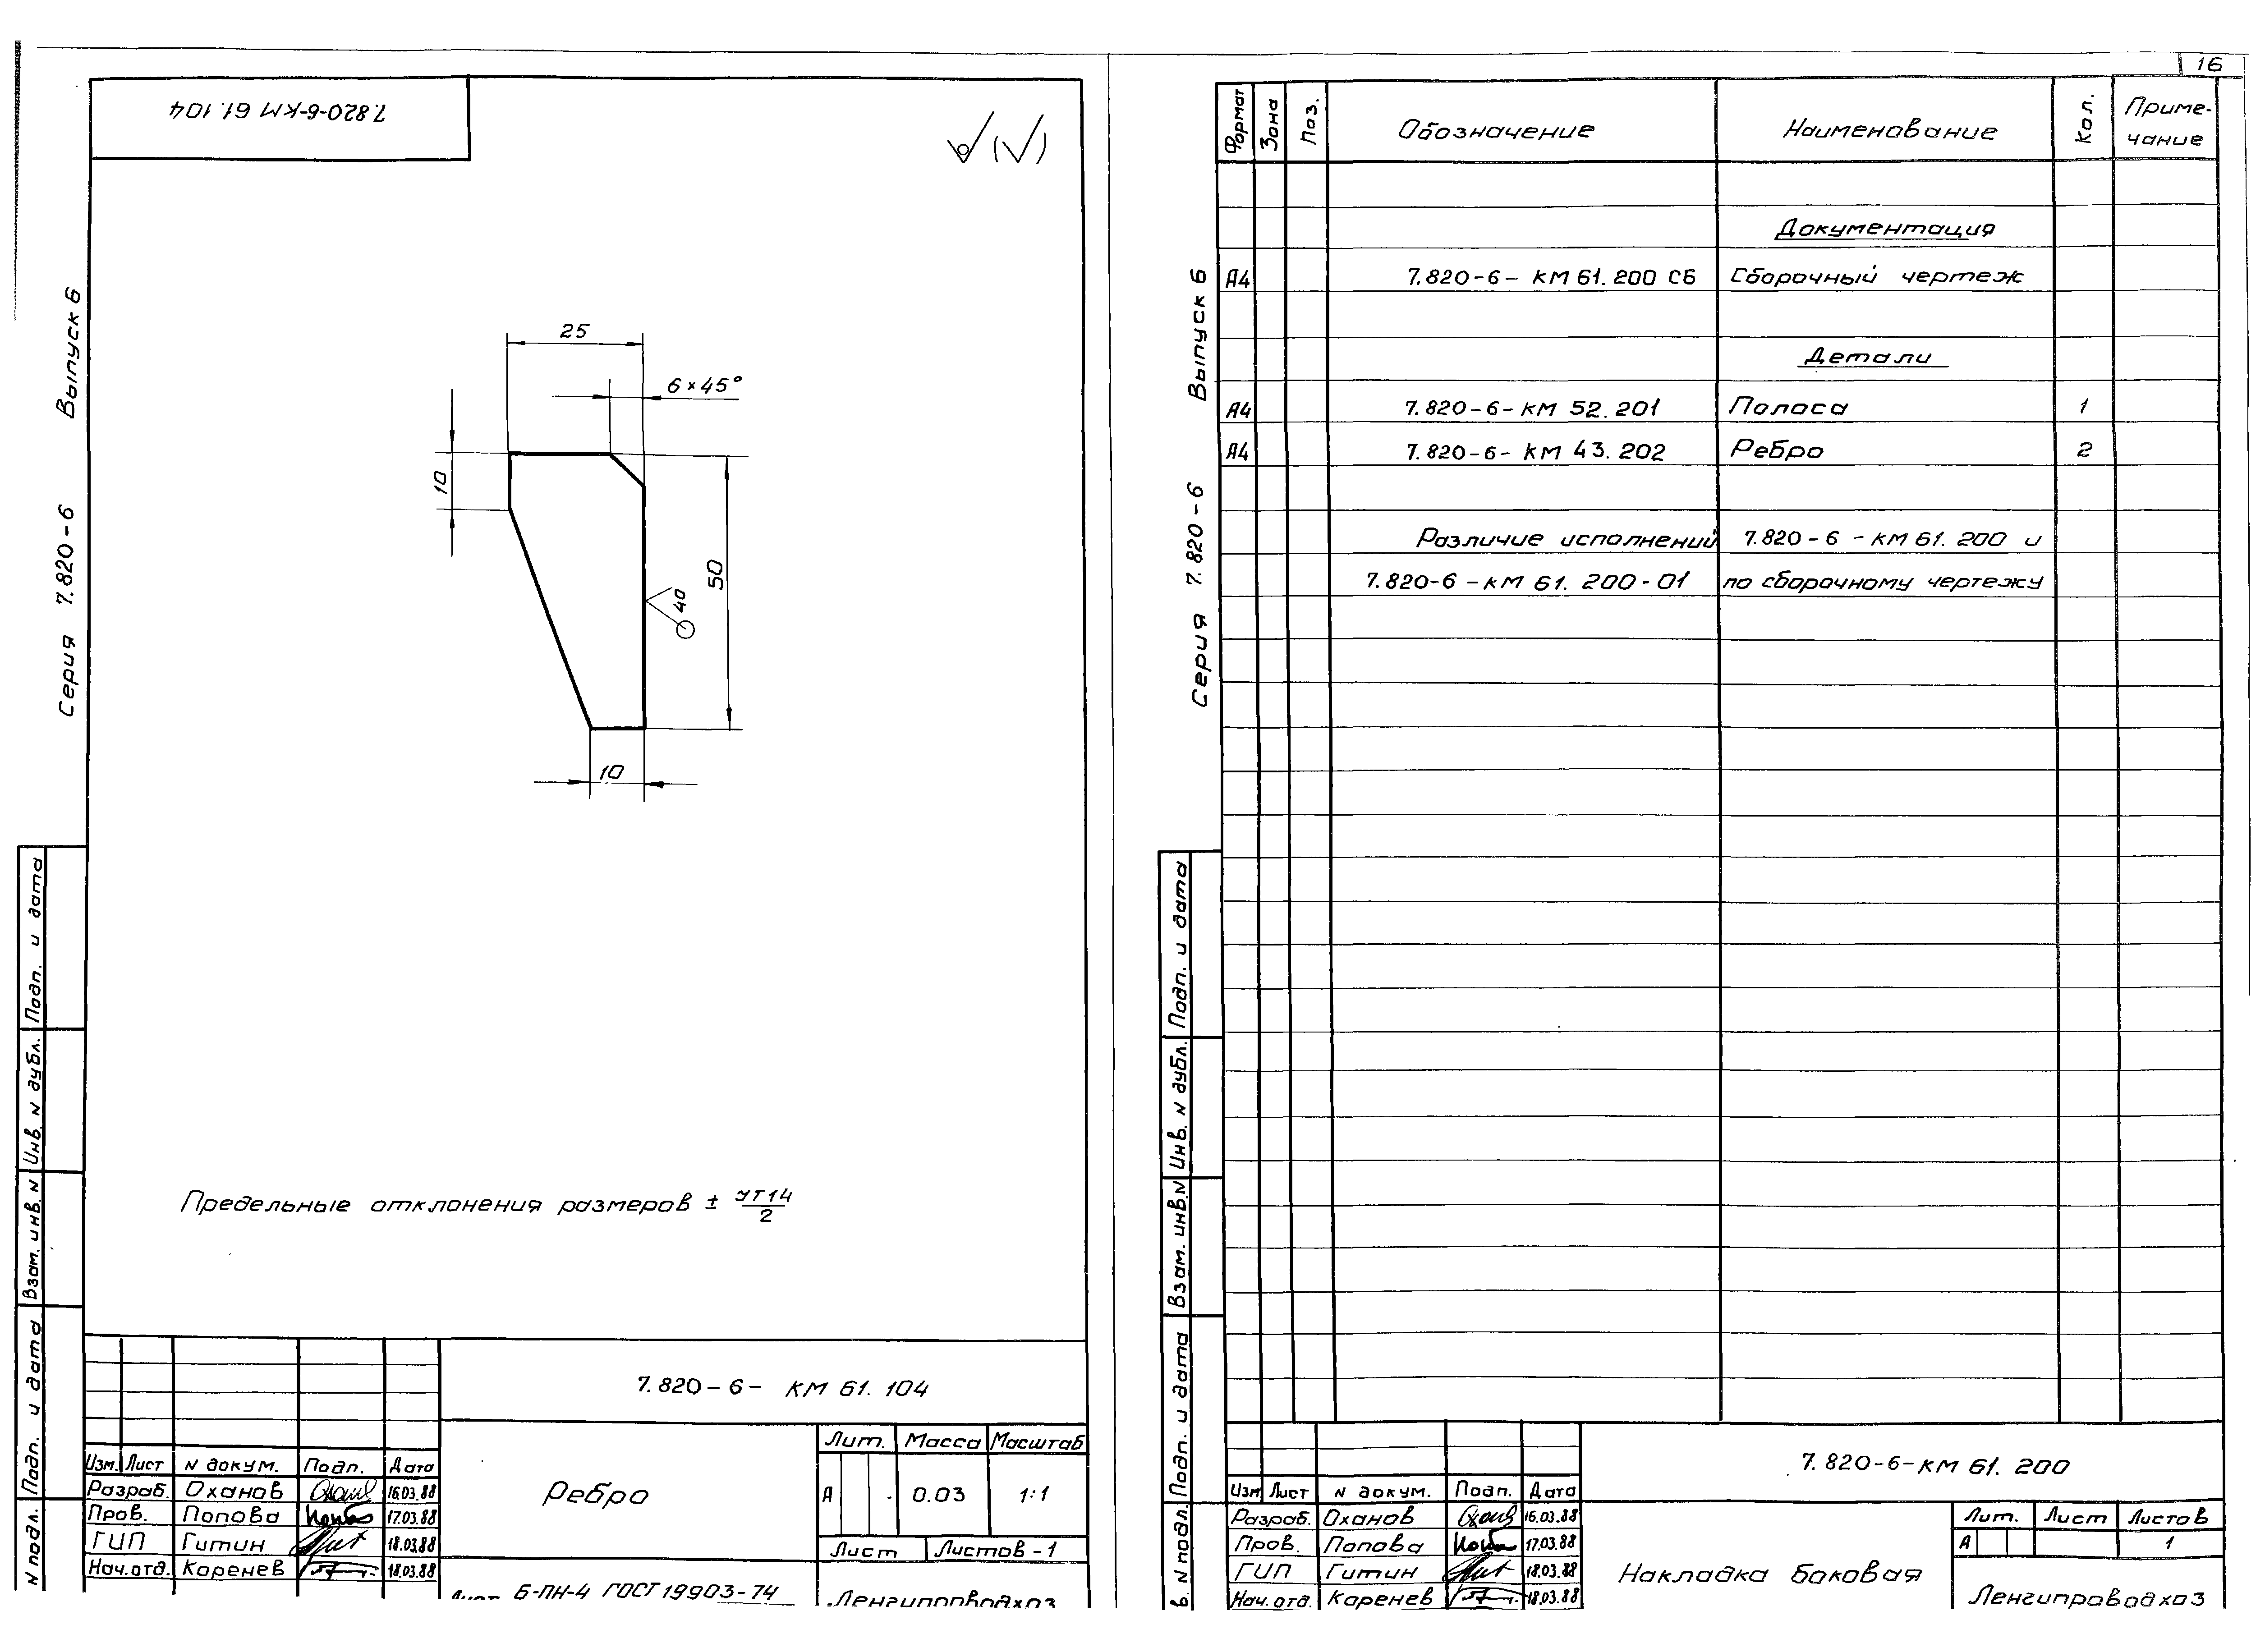 7.820-6-КМ 61.104
25
6×45°
10
50
40
10
Серия 7.820-6 Выпуск 6
Предельные отклонения размеров ± УТ14/2
Подп. и дата
Инв. N дубл.
Взам. инв. N
Подп. и дата
N подл.
7.820-6- КМ 61.104
Лит. Масса Масштаб
Изм. Лист N докум. Подп. Дата
Разраб. Оханов 16.03.88
Пров. Попова 17.03.88
ГИП Гитин 18.03.88
Нач.отд. Коренев 18.03.88
Ребро
А 0.03 1:1
Лист Листов-1
Б-ПН-4 ГОСТ 19903-74
Ленгипроводхоз
16
Формат Зона Поз. Обозначение Наименование Кол. Приме-
чание
Документация
А4 7.820-6-КМ 61.200 СБ Сборочный чертеж
Детали
А4 7.820-6-КМ 52.201 Полоса 1
А4 7.820-6-КМ 43.202 Ребро 2
Различие исполнений 7.820-6-КМ 61.200 и
7.820-6-КМ 61.200-01 по сборочному чертежу
Серия 7.820-6 Выпуск 6
Подп. и дата
Инв. N дубл.
Взам. инв. N
Подп. и дата
в. N подл.
7.820-6-КМ 61.200
Изм Лист N докум. Подп. Дата
Разраб. Оханов 16.03.88
Пров. Попова 17.03.88
ГИП Гитин 18.03.88
Нач.отд. Коренев 18.03.88
Накладка боковая
Лит. Лист Листов
А 1
Ленгипроводхоз